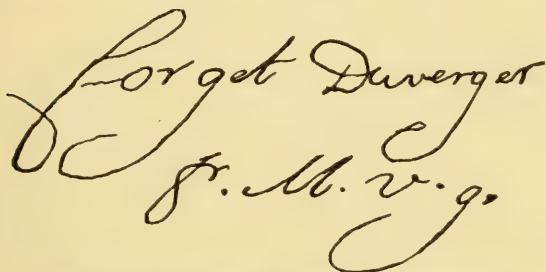 forget Duverger
Jr. M. v. g.